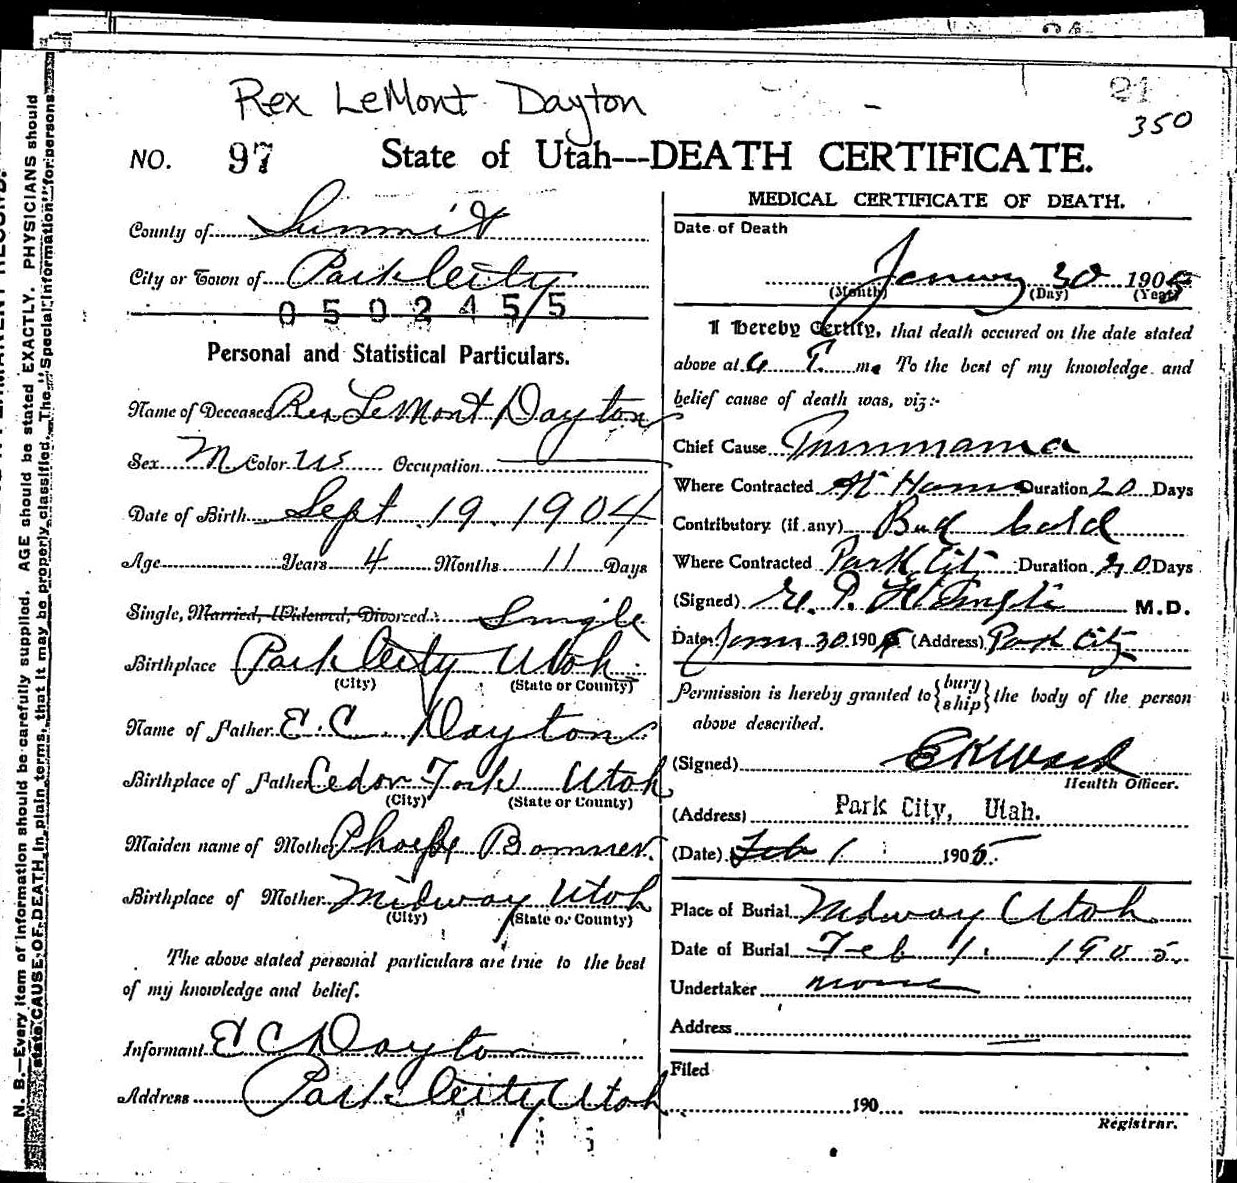 Rex LeMont Dayton
21
350
NO. 97 State of Utah---DEATH CERTIFICATE.
County of Summit
City or Town of Park City
0502455
Personal and Statistical Particulars.
Name of Deceased Rex LeMont Dayton
Sex M Color W Occupation
Date of Birth Sept 19. 1904
Age Years 4 Months 11 Days
Single, Married, Widowed, Divorced: Single
Birthplace Park City Utah
(City) (State or County)
Name of Father E. C. Dayton
Birthplace of Father Cedar Fork Utah
(City) (State or County)
Maiden name of Mother Phoebe Bonner.
Birthplace of Mother Midway Utah
(City) (State or County)
The above stated personal particulars are true to the best
of my knowledge and belief.
Informant E C Dayton
Address Park City Utah
MEDICAL CERTIFICATE OF DEATH.
Date of Death
January 30 1905
(Month) (Day) (Year)
I hereby Certify, that death occured on the date stated
above at 6 P. m. To the best of my knowledge and
belief cause of death was, viz:-
Chief Cause
Where Contracted At Home Duration 20 Days
Contributory (if any) Bad Cold
Where Contracted Park City Duration 20 Days
(Signed) M.D.
Date 30 1905 (Address) Park City
Permission is hereby granted to {bury
ship} the body of the person
above described.
(Signed) E K Ward
Health Officer.
(Address) Park City, Utah.
(Date) Feb 1 1905.
Place of Burial Midway Utah.
Date of Burial Feb 1. 1905.
Undertaker none
Address
Filed
190
Registrar.
N. B.—Every item of information should be carefully supplied. AGE should be stated EXACTLY. PHYSICIANS should
state CAUSE OF DEATH in plain terms, that it may be properly classified. The "Special Information" for persons